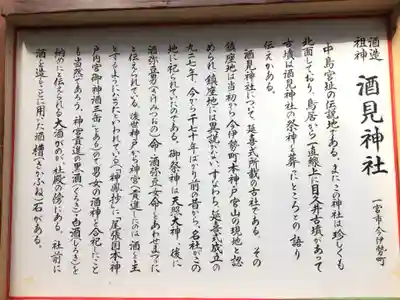 酒造
祖神
酒見神社
一宮市今伊勢町
中島宮址の伝説地である。またこの神社は珍しくも
北面しており、鳥居から一直線上に目久井古墳があって
古墳は酒見神社の祭神を葬ったところとの語り
伝えがある。
酒見神社について、延喜式所載の古社である。その
鎮座地は当初から今伊勢町本神戸宮山の現地と認
められ、鎮座地に異説がない。すなわち、延喜式成立の
九二七年、今から一千七十年ばかり前の昔から、名社がこの
地に祀られていたのである。御祭神は天照大神、後に
酒弥豆男(さけみづおの)命、酒弥豆女命とあわせまつった
と伝えられてる。後世神戸から神宮へ貢進したのは酒を主
とするようになったといわれている。「神鳳抄」に「尾張国本神
戸内宮御神酒三缶」とあるので男女の酒神を合祀したこと
も当然であろう。神宮貢進の黒酒(くろき)白酒(しろき)を
納めたと伝えられる大酒がめが、社殿の傍にある。社前に
酒を造ることに用いた酒槽(さかぶね)石がある。